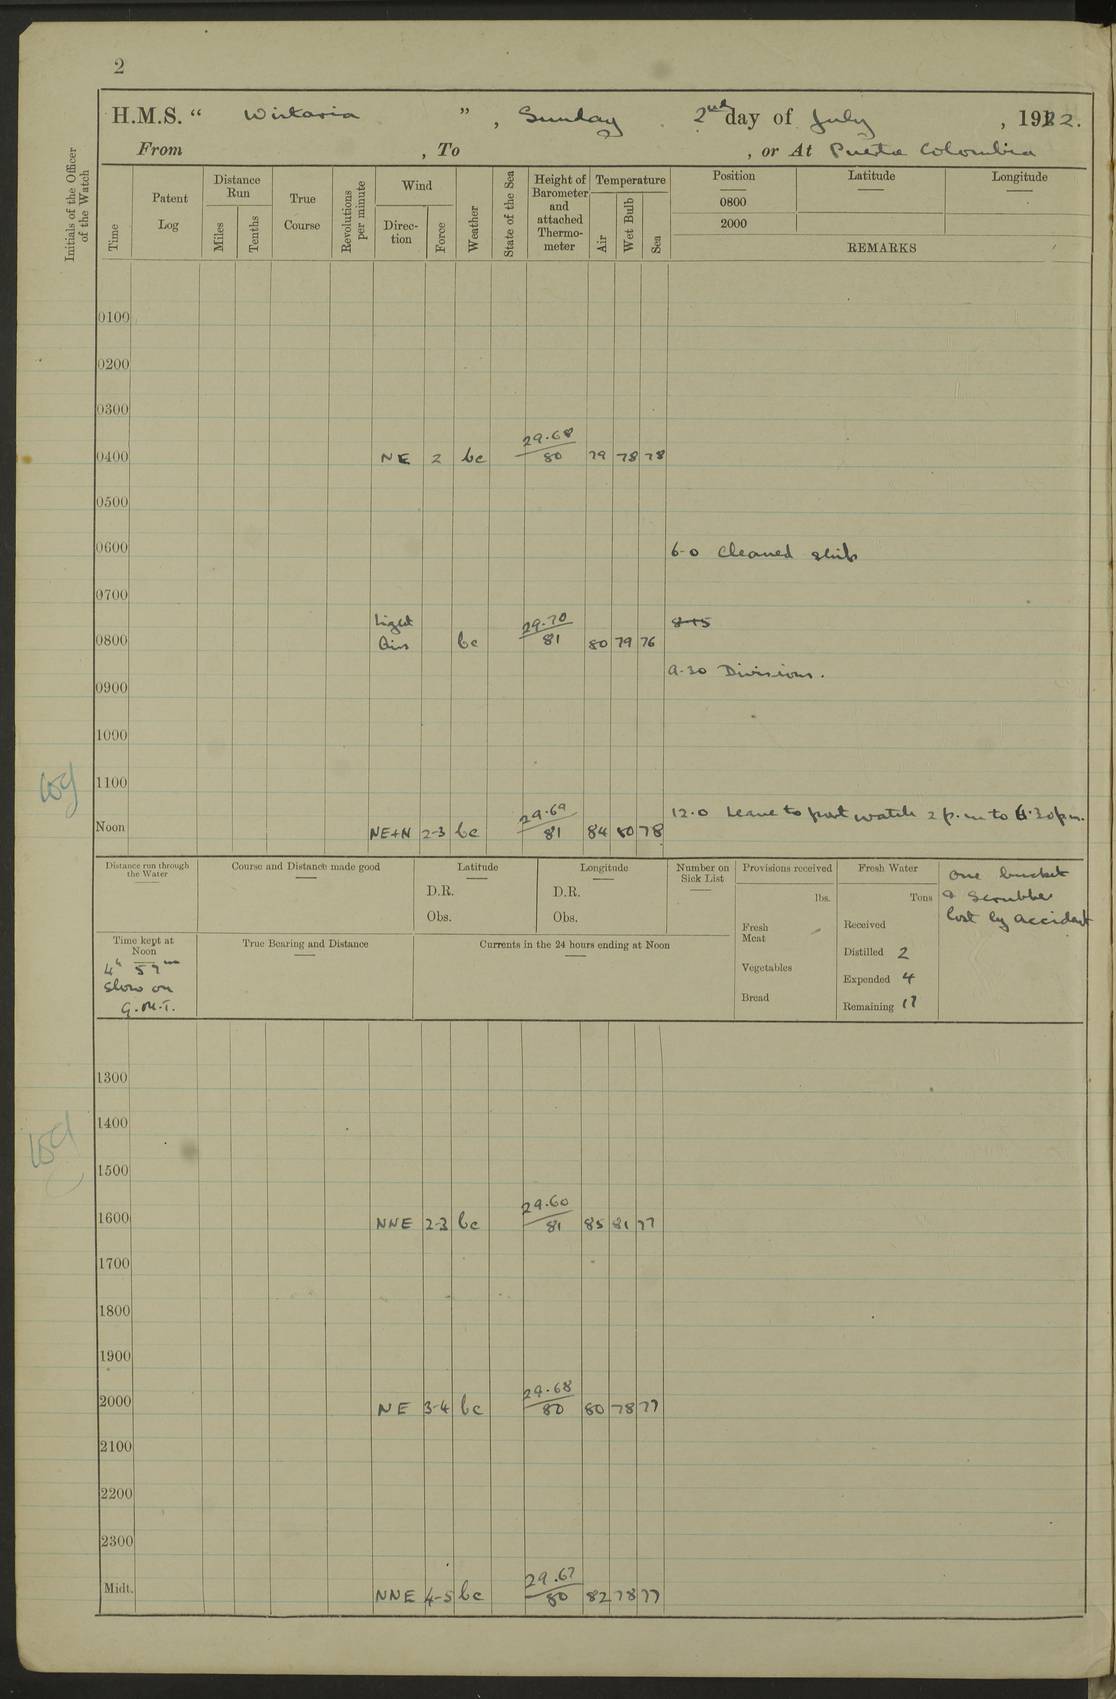 2
H.M.S. “ Wistaria ” , Sunday 2nd day of July , 1922.
From , To , or At Puerto Colombia
Initials of the Officer of the Watch
Time Patent Log Distance Run Miles Tenths True Course Revolutions per minute Wind Direc- tion Force Weather State of the Sea Height of Barometer and attached Thermo- meter Temperature Air Wet Bulb Sea Position Latitude Longitude
0800
2000
REMARKS
0100
0200
0300
0400 NE 2 bc 29.68 / 80 79 78 78
0500
0600 6-0 Cleaned ship
0700
0800 Light Airs bc 29.70 / 81 80 79 76 8-45
9-30 Divisions.
0900
1000
1100
Noon NE+N 2-3 bc 29.69 / 81 84 80 78 12.0 Leave to port watch 2 p.m to 6.30 pm.
Distance run through the Water Course and Distance made good Latitude Longitude Number on Sick List Provisions received Fresh Water
D.R. D.R. lbs. Tons
Obs. Obs.
One bucket
& Scrubber
lost by accident
Fresh Meat
Vegetables
Bread
Received
Distilled 2
Expended 4
Remaining 17
Time kept at Noon True Bearing and Distance Currents in the 24 hours ending at Noon
4h 59m
Slow on
G.M.T.
1300
1400
1500
1600 NNE 2-3 bc 29.60 / 81 85 81 77
1700
1800
1900
2000 NE 3-4 bc 29.68 / 80 80 78 77
2100
2200
2300
Midt. NNE 4-5 bc 29.67 / 80 82 78 77